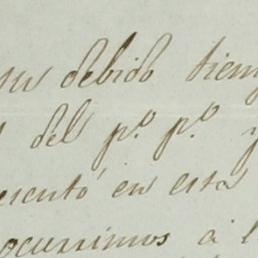 su debido tiem
del p.º p.º y
esentó en esta
ocurrimos á l